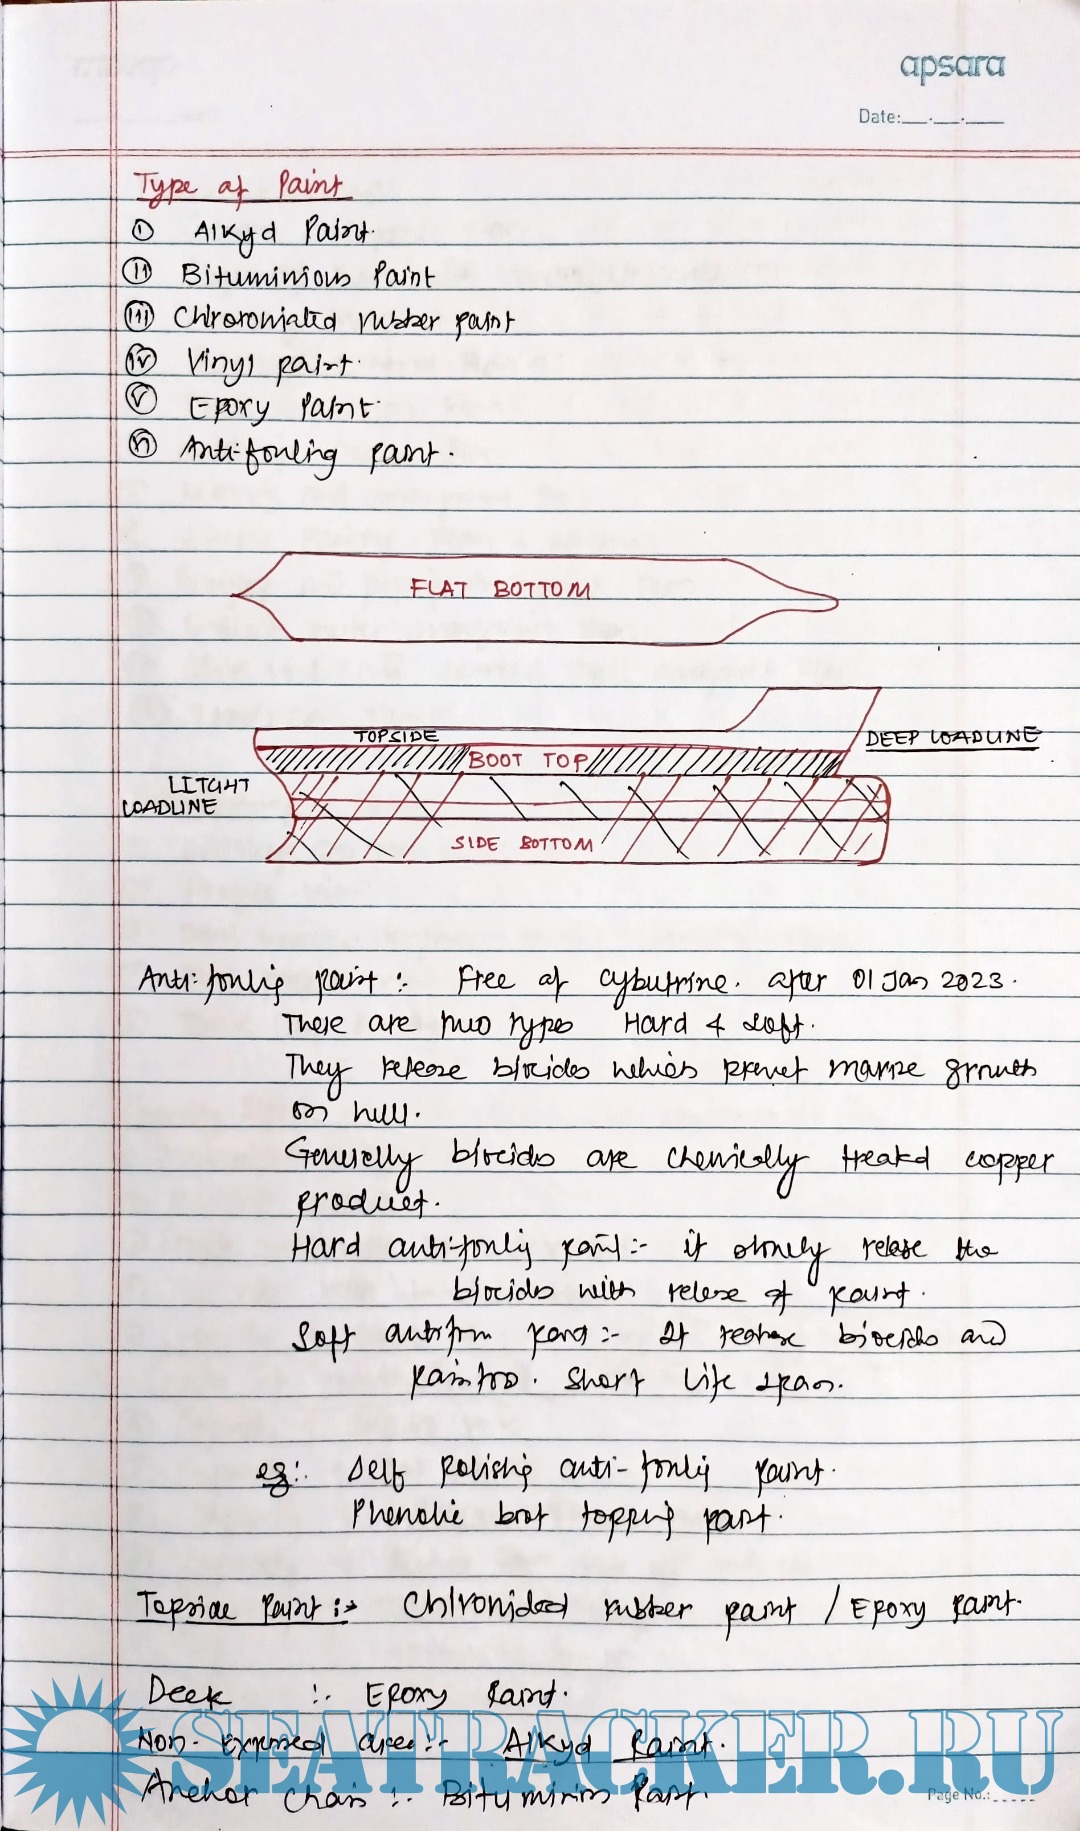 apsara
Date:__.__.__
Type of Paint
(i) Alkyd Paint.
(ii) Bituminious Paint
(iii) Chlroroniated rubber paint
(iv) Vinyl paint.
(v) Epoxy Paint.
(vi) Anti-fouling paint.
FLAT BOTTOM
TOPSIDE
DEEP LOADLINE
BOOT TOP
LITGHT
LOADLINE
SIDE BOTTOM
Anti-fonlig paint :- Free of cybutrine. after 01 Jan 2023.
There are two types Hard & soft.
They release biocides which prevet marine growth
on hull.
Generelly biocides are chemically treated copper
product.
Hard anti-fonlig paint :- it slowly relese the
biocides with relese of paint.
Soft antifon paint :- It release biocides and
paint too. Short life span.
eg:- Self polishig anti-fonlig paint.
Phenolic boot topping paint.
Topside Paint :- Chlronided rubber paint / Epoxy paint.
Deck :- Epoxy Paint.
Non-Exposed area :- Alkyd Paint.
Anchor chain :- Bituminios Paint.
SEATRACKER.RU
Page No.:.....